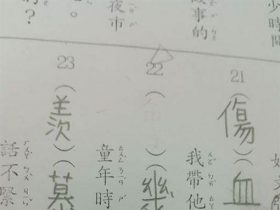 少時間
事的
夜市
。
的？
21（傷）（血
我帶他
22（）（幾
童年時
23（羨）（慕
話不緊